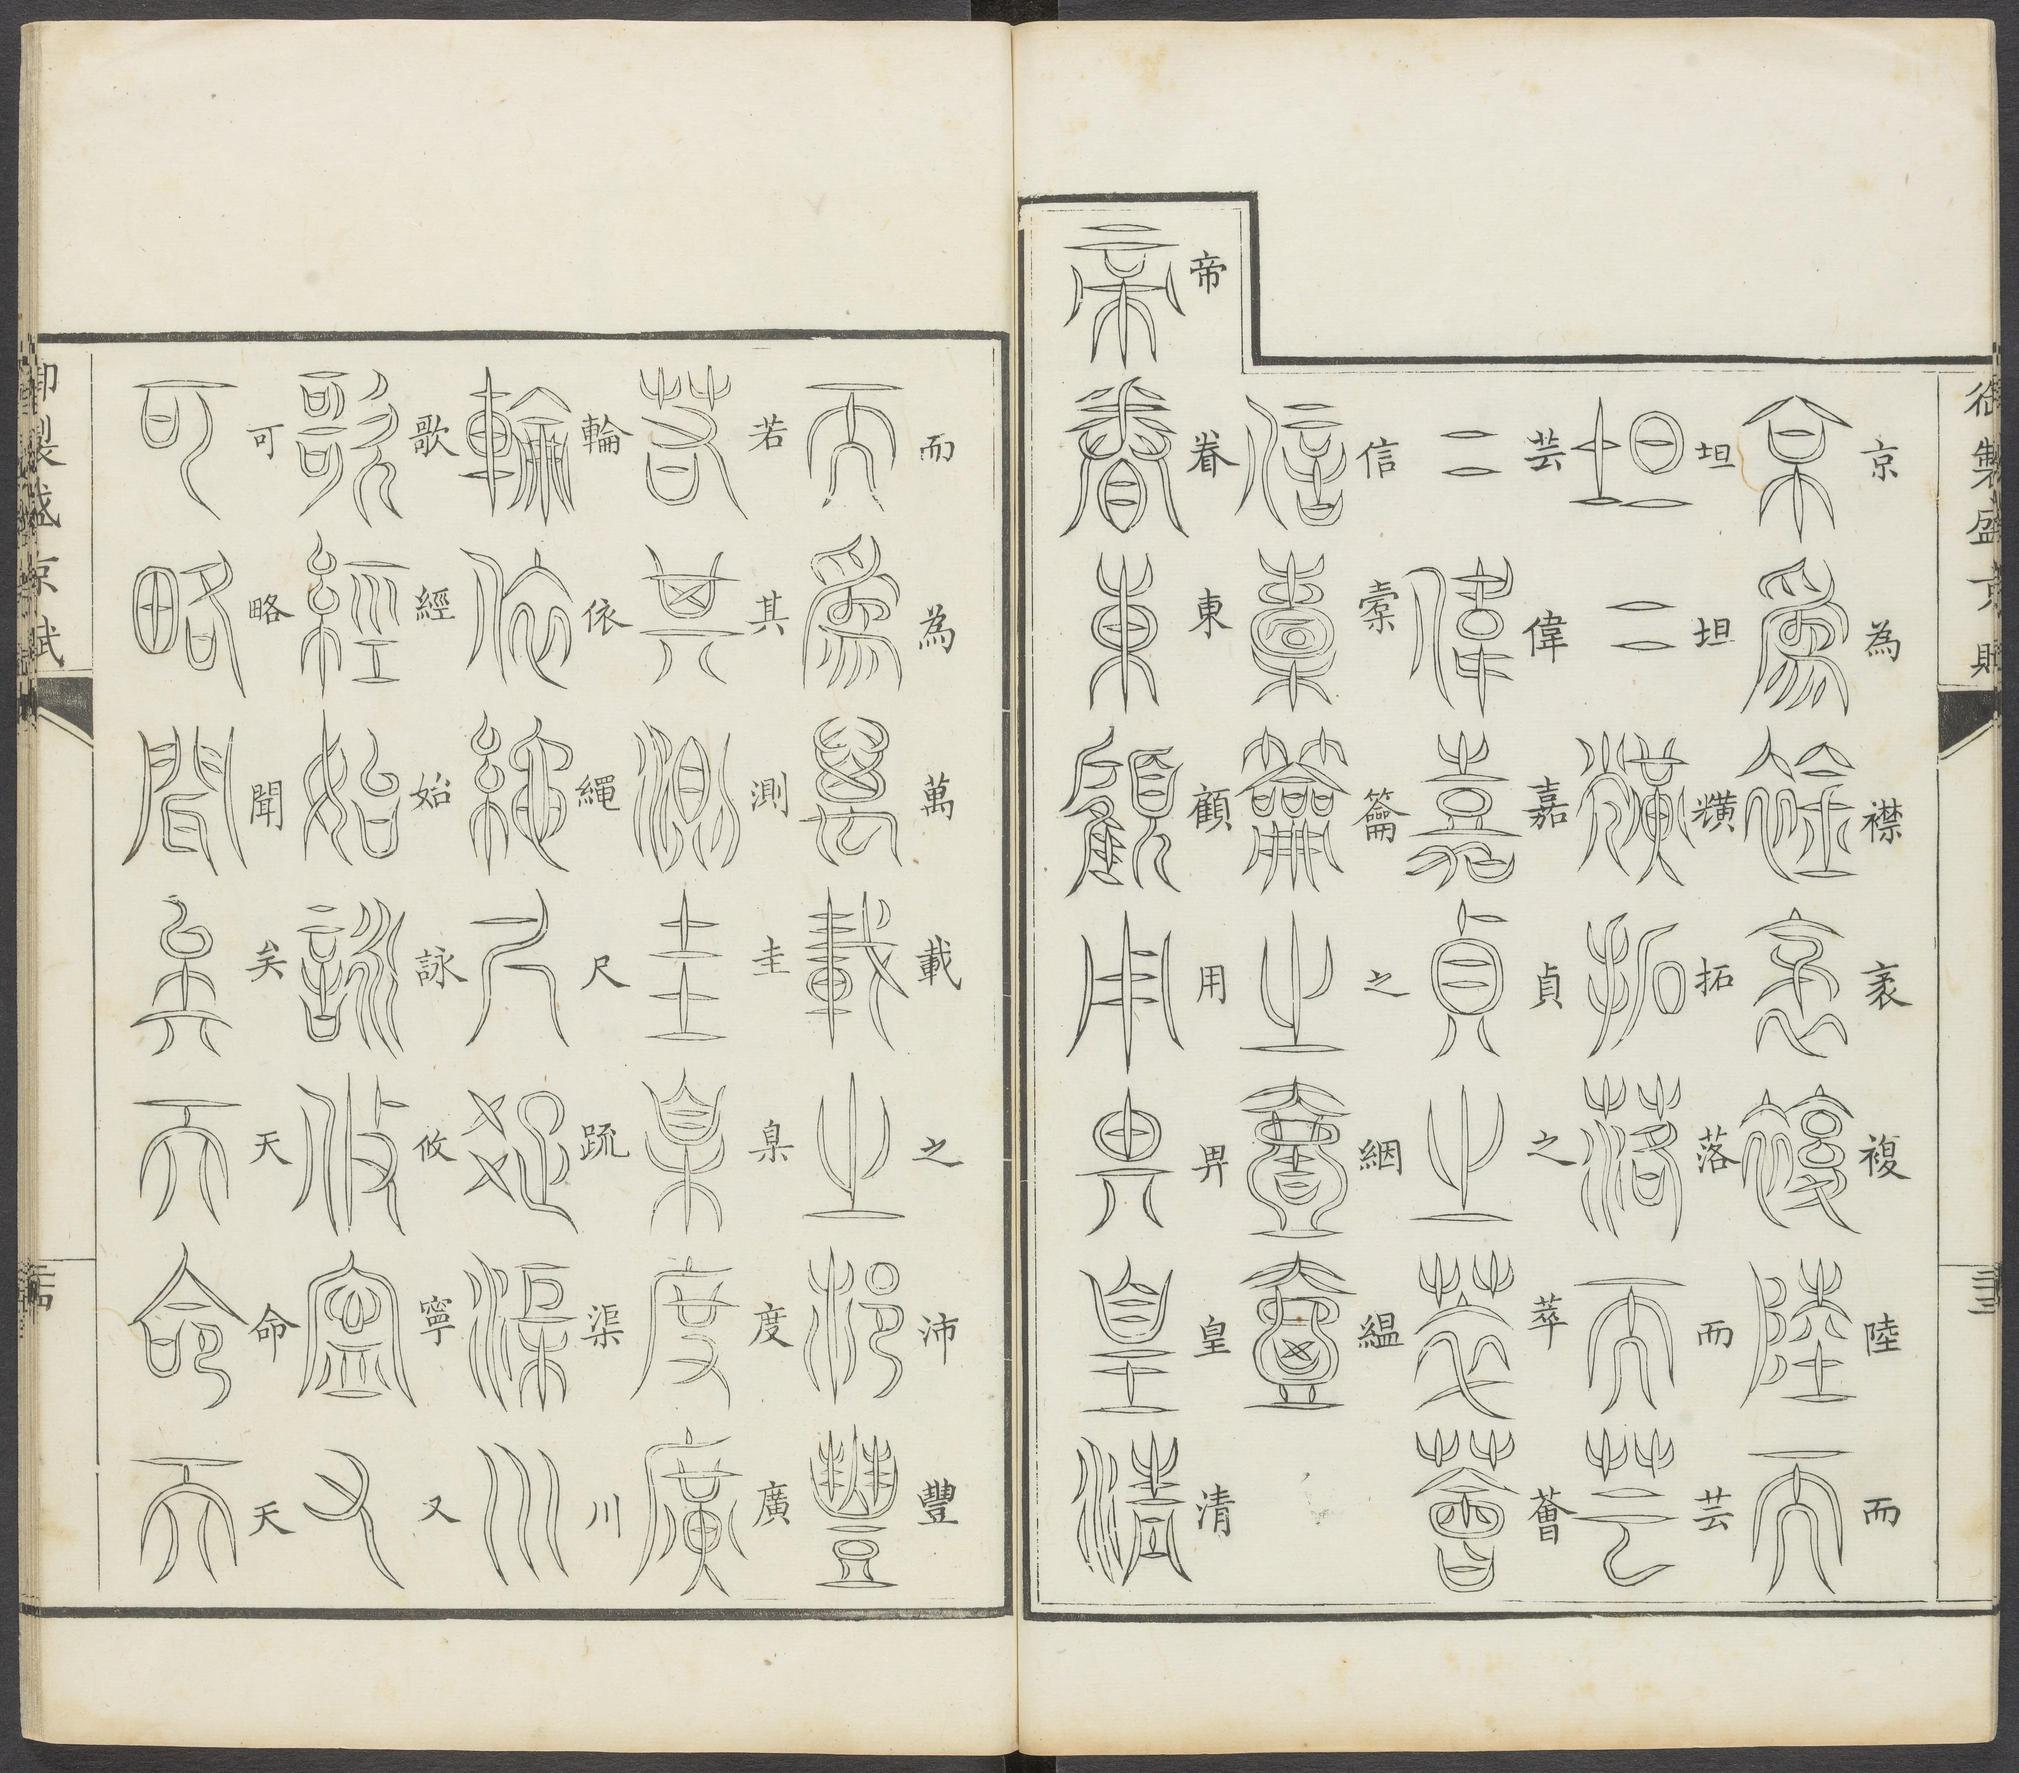 御製盛京賦
京為襟袤複陸而
坦坦熿拓落而芸
芸偉嘉貞之萃薈
信橐籥之絪縕
帝眷東顧用畀皇清
而為萬載之沛豐
若其測圭臬度廣
輪依繩尺疏渠川
歌經始詠攸寧又
可略聞矣天命天
御製盛京賦